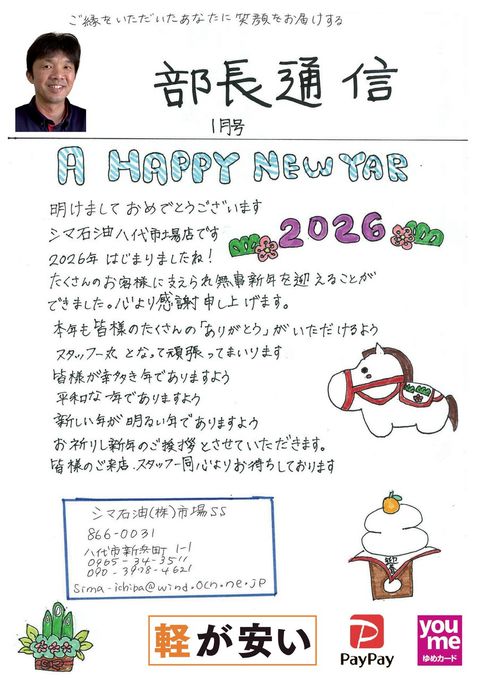 ご縁をいただいたあなたに笑顔をお届けする
部長通信
1月号
A HAPPY NEW YAR
明けましておめでとうございます
シマ石油八代市場店です
2026
2026年はじまりましたね!
たくさんのお客様に支えられ無事新年を迎えることが
できました。心より感謝申し上げます。
本年も皆様のたくさんの「ありがとう」がいただけるよう
スタッフ一丸となって頑張ってまいります
皆様が幸多き年でありますよう
平和な一年でありますよう
新しい年が明るい年でありますよう
お祈りし新年のご挨拶とさせていただきます。
皆様のご来店、スタッフ一同心よりお待ちしております
シマ石油(株)市場SS
866-0031
八代市新浜町 1-1
0965-34-3511
090-3978-4621
sima-ichiba@wind.ocn.ne.jp
軽が安い
PayPay
you
me
ゆめカード